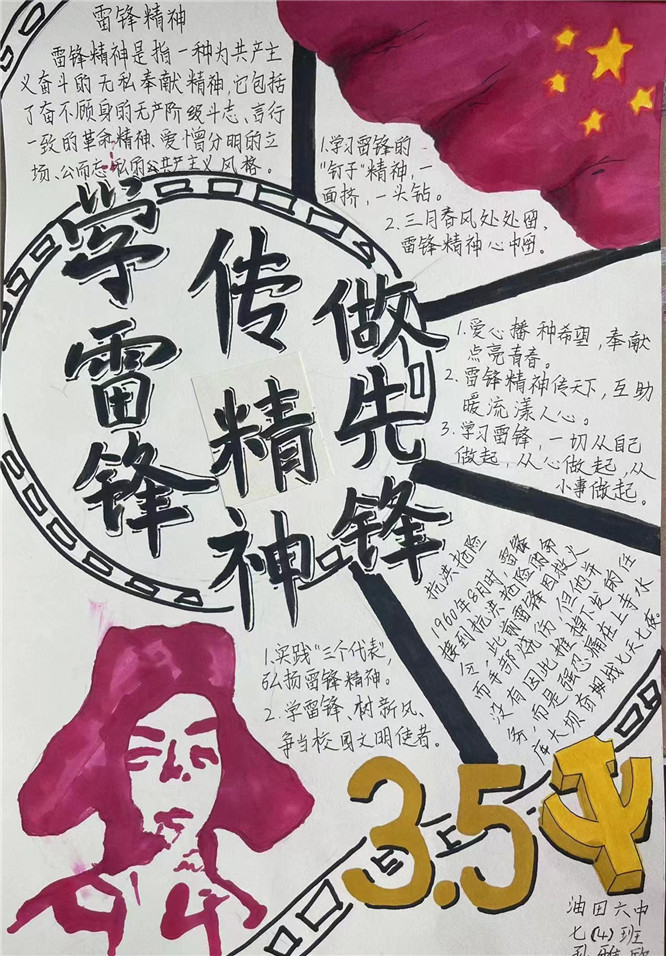 雷锋精神
雷锋精神是指一种为共产主
义奋斗的无私奉献精神,它包括
了奋不顾身的无产阶级斗志、言行
一致的革命精神、爱憎分明的立
场、公而忘私的共产主义风格。
1.学习雷锋的
"钉子"精神,一
面挤,一头钻。
2.三月春风处处留、
雷锋精神心中留。
学雷锋
传精神
做先锋
1.爱心播种希望,奉献
点亮青春。
2.雷锋精神传天下,互助
暖流漾人心。
3.学习雷锋,一切从自己
做起,从心做起,从
小事做起。
抗洪抢险
1960年8月时,雷锋
接到抗洪抢险命
令,此前雷锋因救火
而手部烧伤,但他并
没有因此推掉下发的任
务,而是强忍痛在上寺水
库大坝奋战七天七夜。
1.实践"三个代表",
弘扬雷锋精神。
2.学雷锋、树新风、
争当校园文明使者。
3.5
油田六中
七(4)班